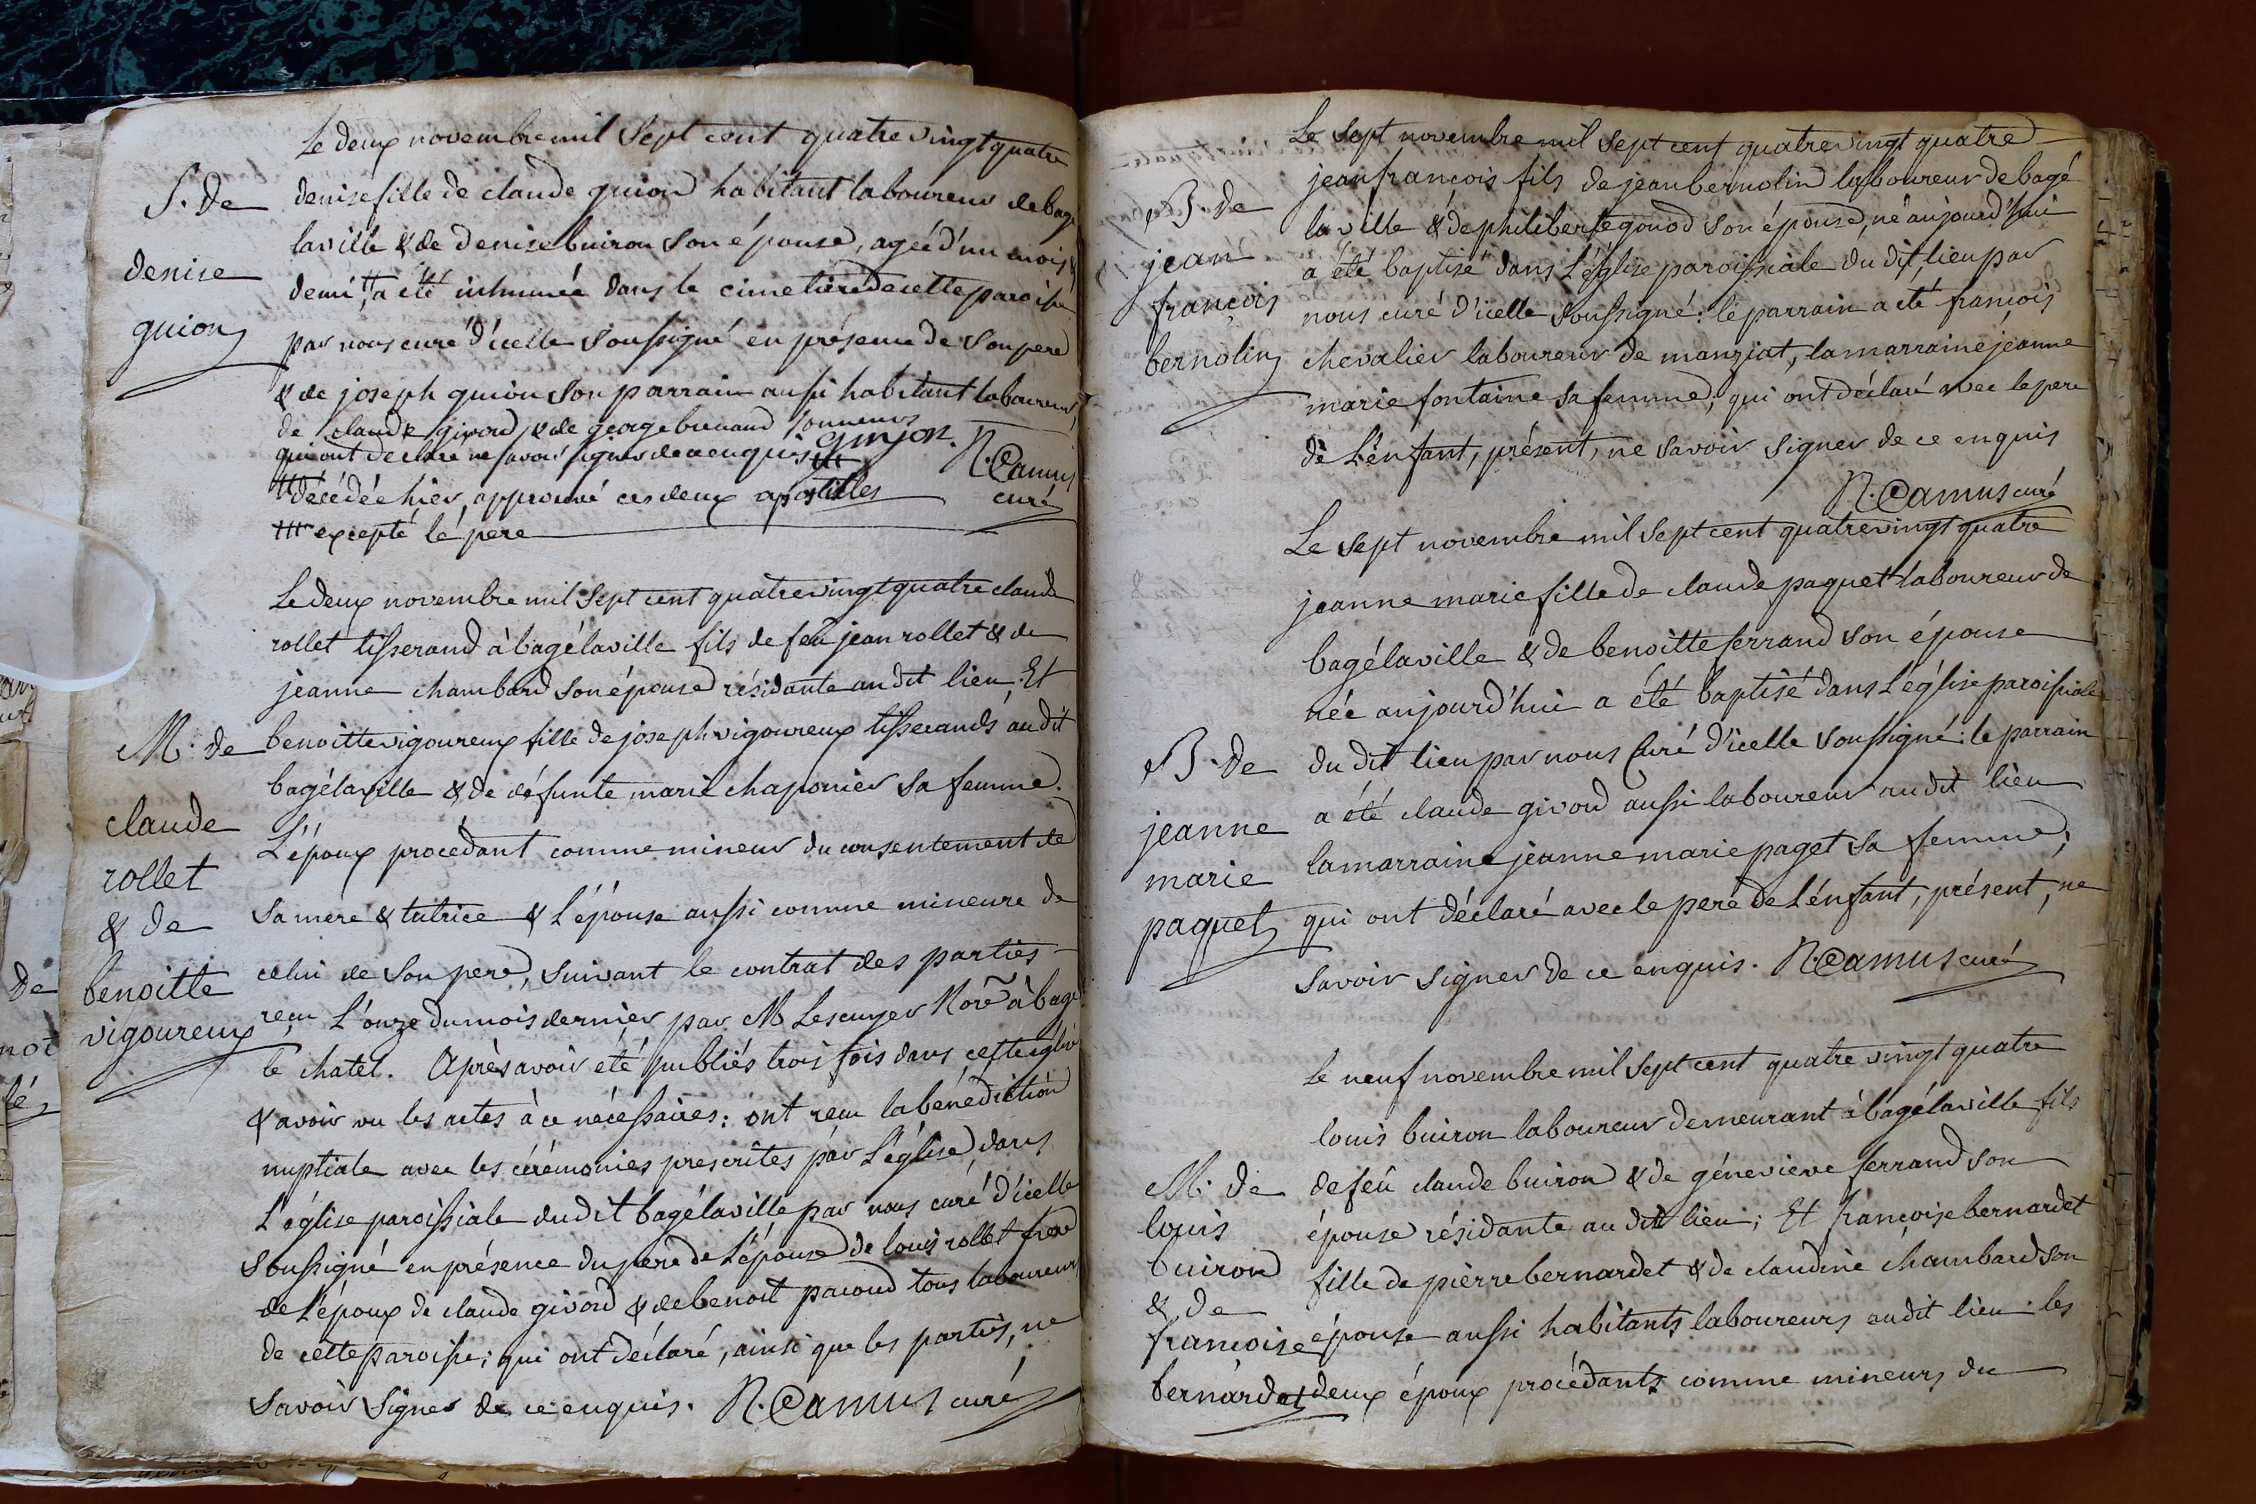 Le deux novembre mil sept cent quatre vingt quatre
S. de
denise
guion
denise fille de claude guion habitant laboureur de bagé
la ville & de denise buiron son épouse, agée d'un mois &
demi, a été inhumée dans le cimetière de cette paroisse
par nous curé d'icelle soussigné en présence de son pere
& de joseph guion son parrain aussi habitant laboureur,
de claude givord & de george brevand sonneurs
qui ont declaré ne savoir signer de ce enquis guyon. N. Camus
décédée hier, approuvé ces deux apostilles curé
excepté le pere
Le deux novembre mil sept cent quatre vingt quatre claude
rollet tisserand à bagé la ville fils de feu jean rollet & de
jeanne chambard son épouse résidante au dit lieu; Et
M. de
claude
rollet
& de
benoitte
vigoureux
benoitte vigoureux fille de joseph vigoureux tisserands au dit
bagé la ville & de défunte marie chaponier sa femme.
L'époux procédant comme mineur du consentement de
sa mere & tutrice & l'épouse aussi comme mineure de
celui de son pere, suivant le contrat des parties
reçu l'onze du mois dernier par M Lescuyer Nore à bagé
le chatel. Après avoir été publiés trois fois dans cette église
& avoir vu les actes à ce nécessaires: ont reçu la bénédiction
nuptiale avec les cérémonies prescrites par l'église, dans
L'église paroissiale du dit bagé la ville par nous curé d'icelle
soussigné en présence du pere de l'épouse de louis rollet frere
de l'époux de claude givord & de benoit pacoud tous laboureurs
de cette paroisse; qui ont déclaré, ainsi que les parties, ne
savoir signer de ce enquis. N. Camus curé
Le sept novembre mil sept cent quatre vingt quatre
B. de
jean
françois
bernolin
jean françois fils de jean bernolin laboureur de bagé
la ville & de philiberte gonod son épouse, né aujourd'hui
a été baptisé dans l'église paroissiale du dit lieu par
nous curé d'icelle soussigné: le parrain a été françois
chevalier laboureur de manziat, la marraine jeanne
marie fontaine sa femme; qui ont déclaré avec le pere
de l'enfant, présent, ne savoir signer de ce enquis
N. Camus curé
Le sept novembre mil sept cent quatre vingt quatre
jeanne marie fille de claude paquet laboureur de
bagé la ville & de benoitte ferrand son épouse
née aujourd'hui a été baptisé dans l'église paroissiale
B. de
jeanne
marie
paquet
du dit lieu par nous curé d'icelle soussigné: le parrain
a été claude givord aussi laboureur au dit lieu
la marraine jeanne marie paget sa femme;
qui ont déclaré avec le pere de l'enfant, présent, ne
savoir signer de ce enquis. N. Camus curé
Le neuf novembre mil sept cent quatre vingt quatre
louis buiron laboureur demeurant à bagé la ville fils
M. de
louis
buiron
& de
françoise
bernardet
de feu claude buiron & de génevieve ferrand son
épouse résidante au dit lieu; Et françoise bernardet
fille de pierre bernardet & de claudine chambard son
épouse aussi habitants laboureurs au dit lieu: les
deux époux procédants comme mineurs du